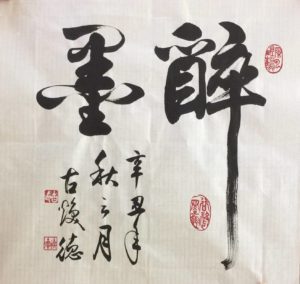 醉墨
辛丑年
秋之月
古俊德